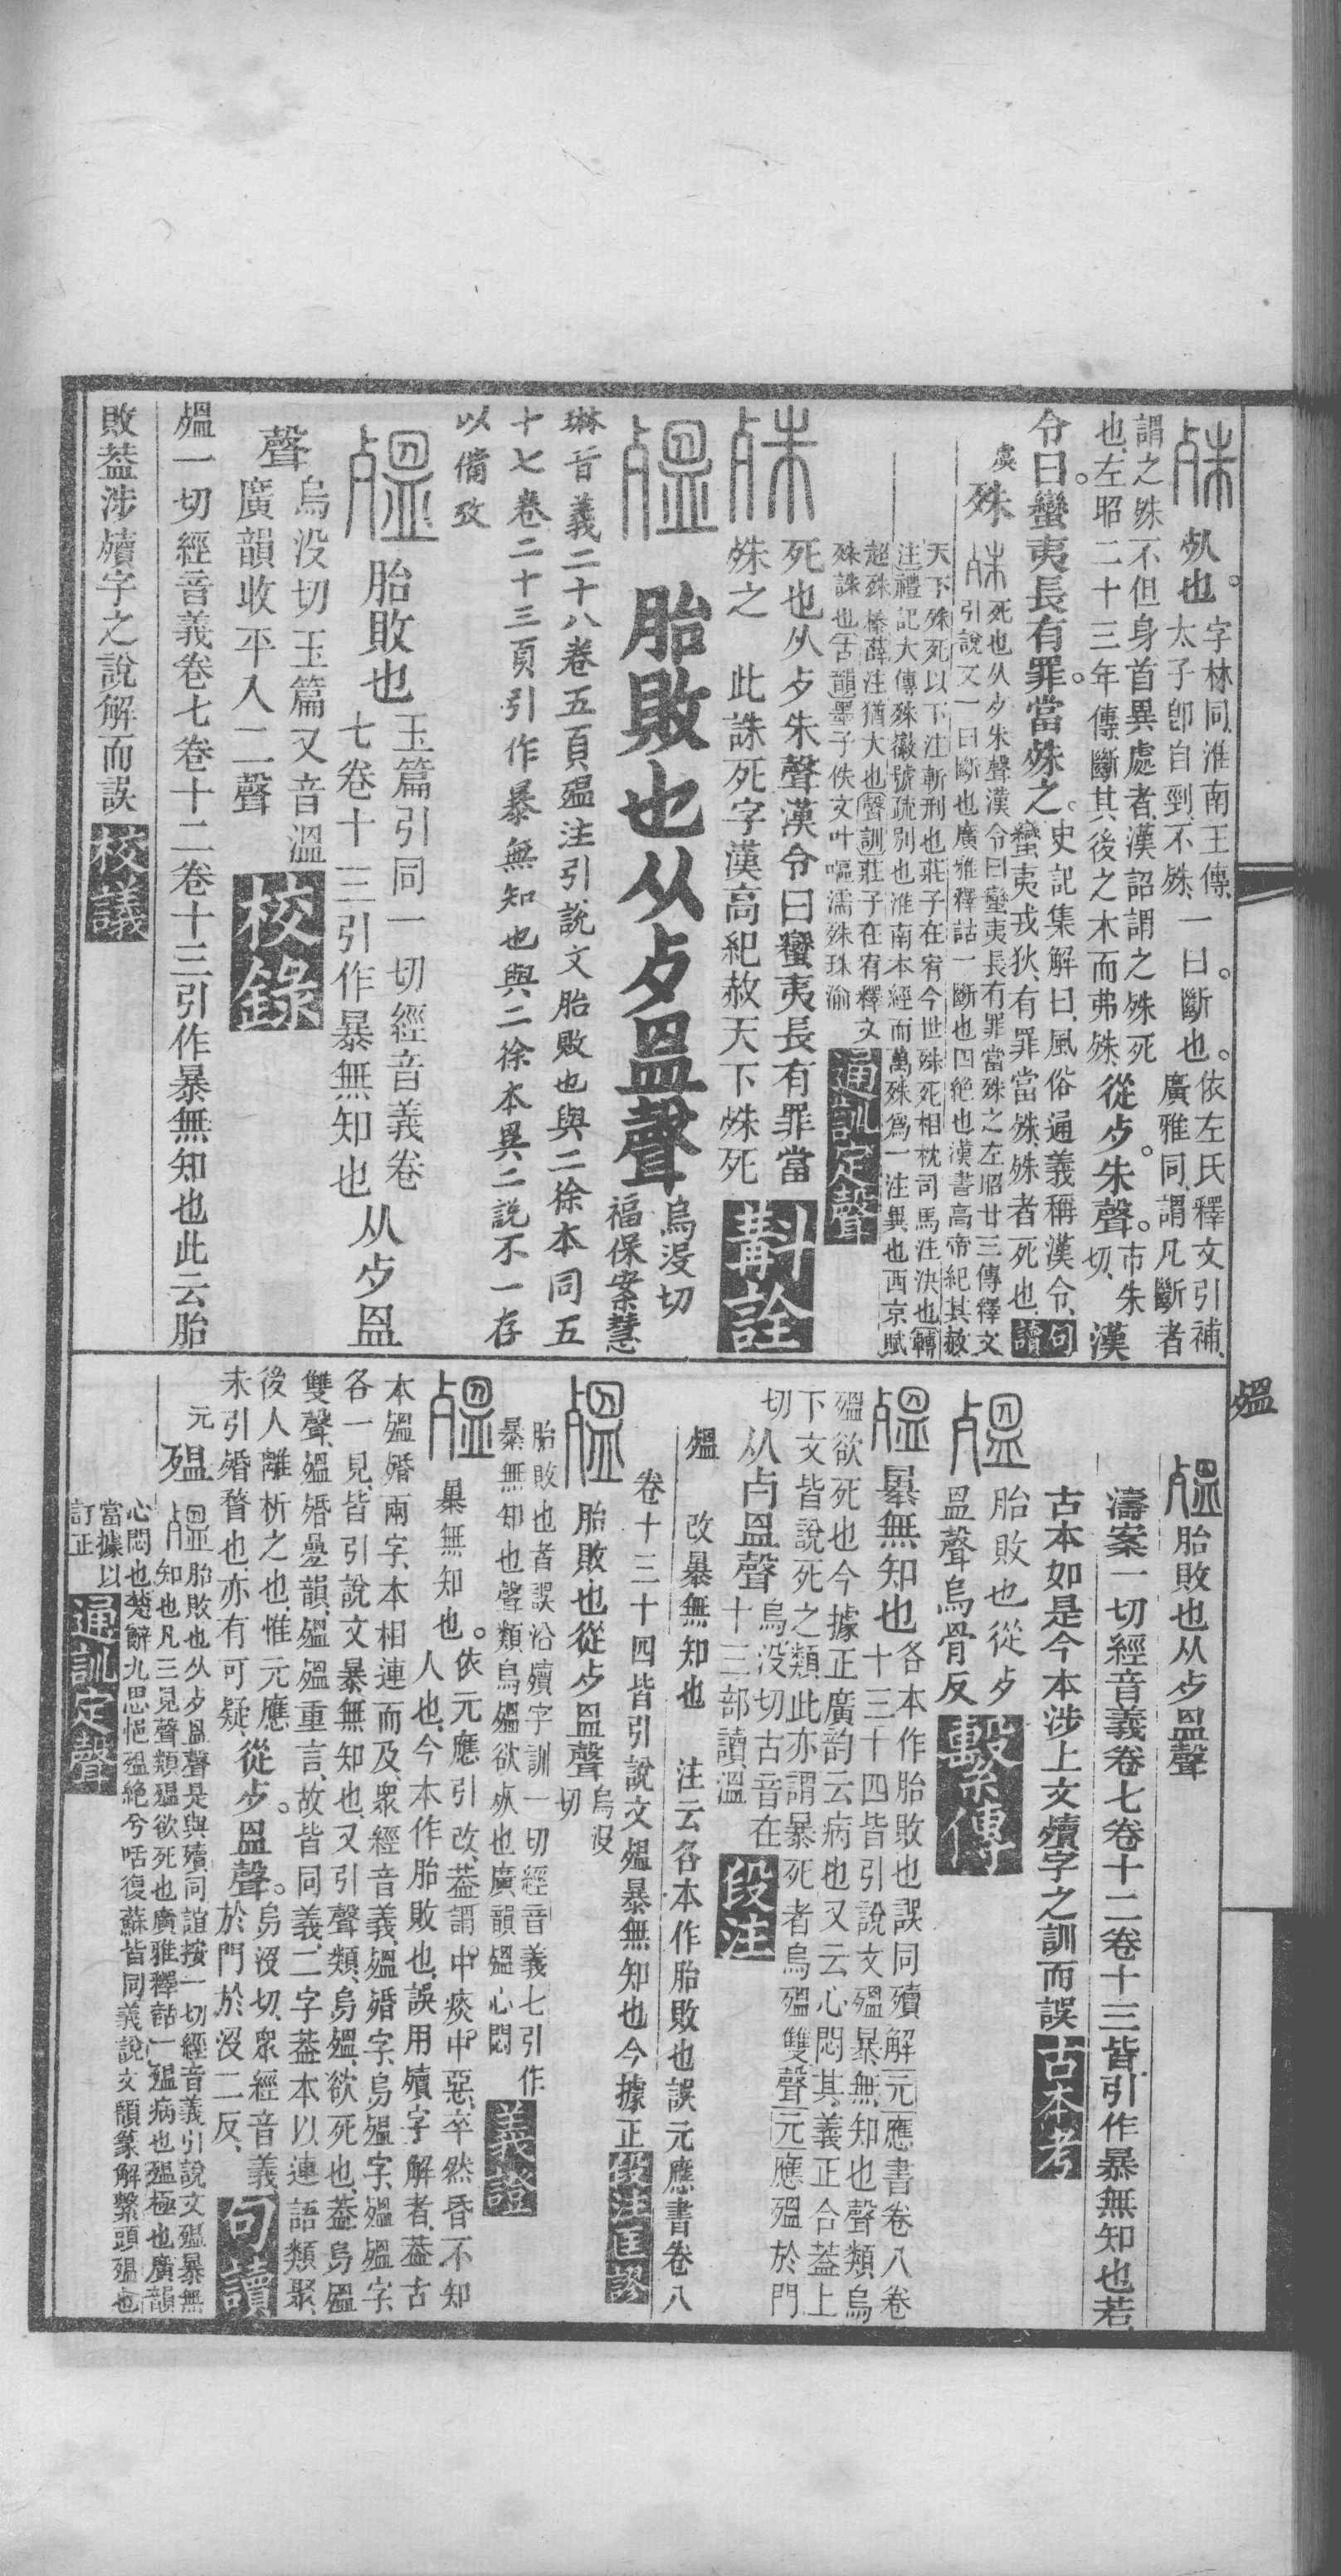 殊 殊也字林同淮南王傳
太子卽自剄不殊一曰斷也依左氏釋文引補
廣雅同謂凡斷者
謂之殊不但身首異處者漢詔謂之殊死
也左昭二十三年傳斷其後之木而弗殊從歺朱聲市朱切漢
令曰蠻夷長有罪當殊之史記集解曰風俗通義稱漢令
蠻夷戎狄有罪當殊殊者死也句讀
虞殊 死也从歺朱聲漢令曰蠻夷長有罪當殊之左昭廿三傳釋文
引說文一曰斷也廣雅釋詁一斷也四絕也漢書高帝紀其赦
天下殊死以下注斬刑也莊子在宥今世殊死相枕司馬注決也轉
注禮記大傳殊徽號疏別也淮南本經而萬殊爲一注異也西京賦
超殊榛薛注猶大也聲訓莊子在宥釋文
殊誅也古韻墨子佚文叶嘔濡殊珠渝通訓定聲
殊 死也从歺朱聲漢令曰蠻夷長有罪當
殊之 此誅死字漢高紀赦天下殊死斠詮
殟 胎敗也从歺𥁕聲烏沒切
福保案慧
琳音義二十八卷五頁殟注引說文胎敗也與二徐本同五
十七卷二十三頁引作暴無知也與二徐本異二說不一存
以備攷
殟 胎敗也玉篇引同一切經音義卷
七卷十三引作暴無知也从歺𥁕
聲烏没切玉篇又音溫
廣韻收平入二聲校錄
殟一切經音義卷七卷十二卷十三引作暴無知也此云胎
敗葢涉殰字之說解而誤校議
殟
殟 胎敗也从歺𥁕聲
濤案一切經音義卷七卷十二卷十三皆引作暴無知也若
古本如是今本涉上文殰字之訓而誤古本考
殟 胎敗也從歺
𥁕聲烏骨反繫傳
殟 暴無知也各本作胎敗也誤同殰解元應書卷八卷
十三十四皆引說文殟暴無知也聲類烏
殟欲死也今據正廣韵云病也又云心悶其義正合葢上
下文皆說死之類此亦謂暴死者烏殟雙聲元應殟於門
切从歺𥁕聲烏没切古音在
十三部讀溫段注
殟 改暴無知也 注云各本作胎敗也誤元應書卷八
卷十三十四皆引說文殟暴無知也今據正段注匡謬
殟 胎敗也從歺𥁕聲烏沒
切
胎敗也者誤沿殰字訓一切經音義七引作
暴無知也聲類烏殟欲死也廣韻殟心悶義證
殟 暴無知也依元應引改葢謂中痰中惡卒然昏不知
人也今本作胎敗也誤用殰字解者葢古
本殟㱪兩字本相連而及衆經音義殟㱪字烏殟字殟殟字
各一見皆引說文暴無知也又引聲類烏殟欲死也葢烏殟
雙聲殟㱪疊韻殟殟重言故皆同義二字葢本以連語類聚
後人離析之也惟元應從歺𥁕聲烏沒切衆經音義
未引㱪瞀也亦有可疑於門於沒二反句讀
元殟 胎敗也从歺𥁕聲是與殰同誼按一切經音義引說文殟暴無
知也凡三見聲類殟欲死也廣雅釋詁一殟病也殟極也廣韻
心悶也楚辭九思悒殟絶兮咶復蘇皆同義說文頢篆解繫頭殟也
當據以
訂正通訓定聲